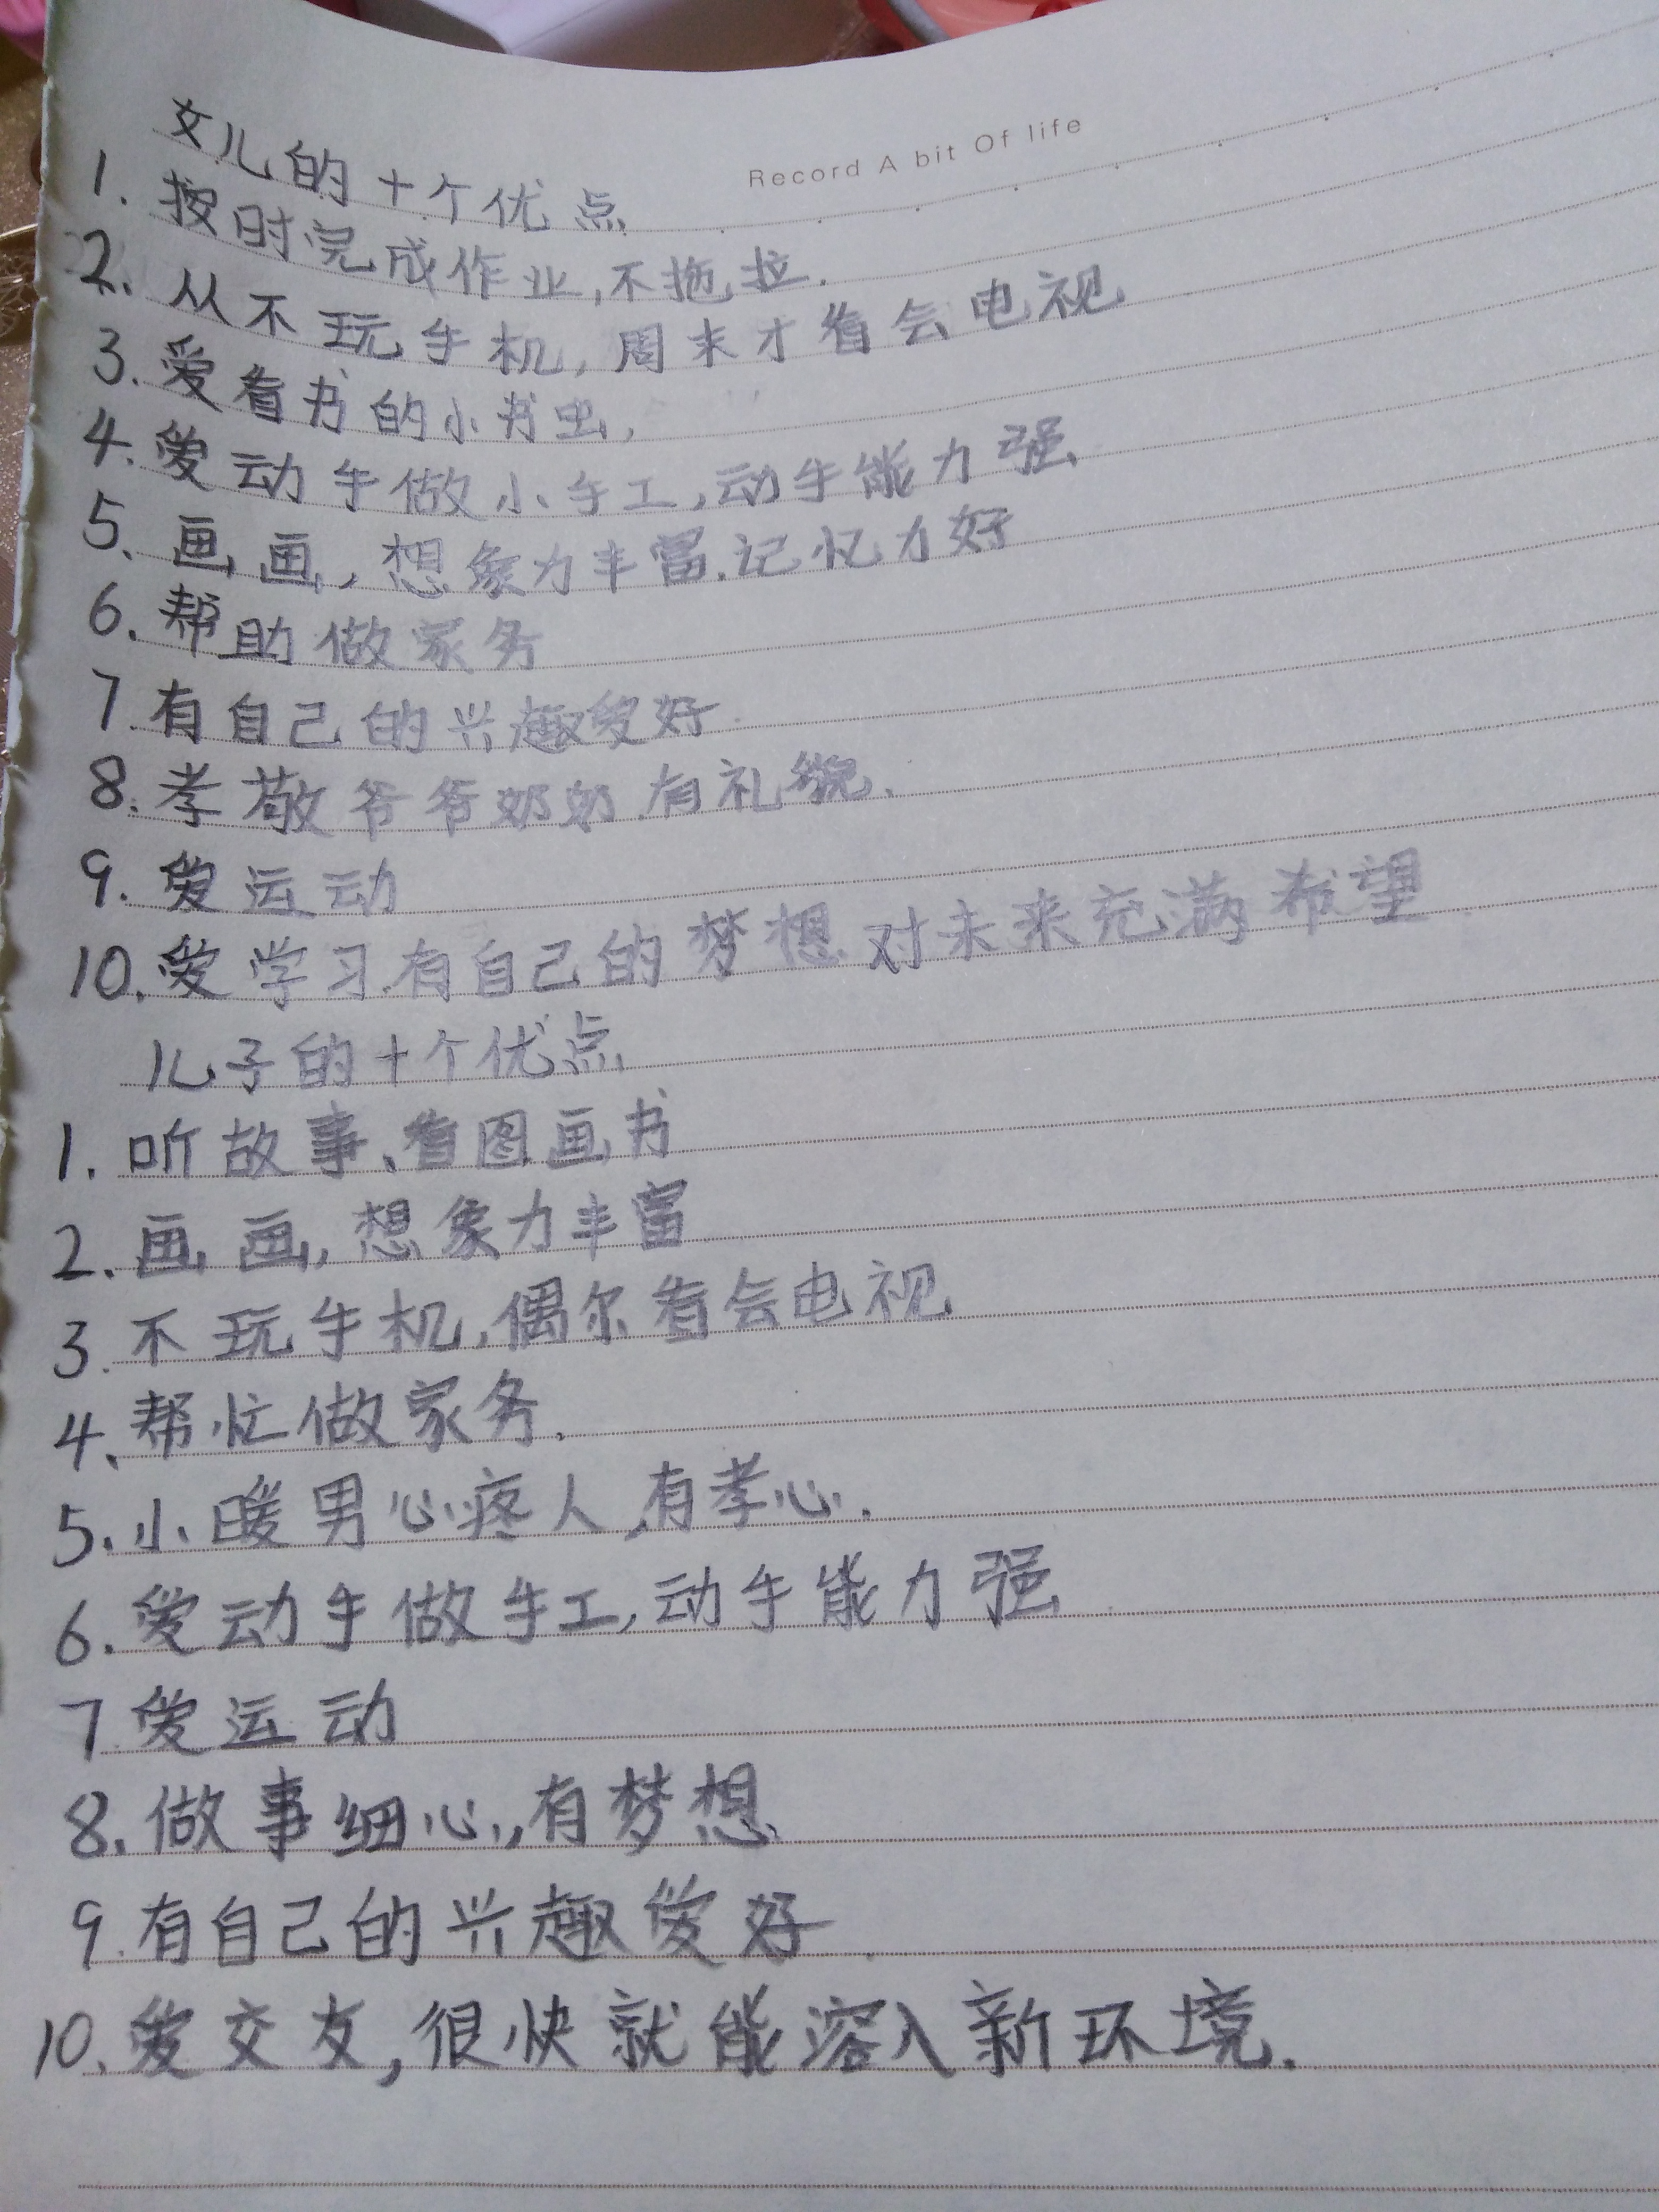 Record A bit Of life
女儿的十个优点
1. 按时完成作业,不拖拉.
2. 从不玩手机,周末才看会电视
3. 爱看书的小书虫,
4. 爱动手做小手工,动手能力强
5、画画,想象力丰富.记忆力好
6. 帮助做家务
7.有自己的兴趣爱好.
8. 孝敬爷爷奶奶.有礼貌.
9. 爱运动
10.爱学习.有自己的梦想.对未来充满希望.
儿子的十个优点
1. 听故事、看图画书
2. 画画,想象力丰富
3. 不玩手机,偶尔看会电视
4、帮忙做家务.
5.小暖男心疼人,有孝心.
6.爱动手做手工,动手能力强
7.爱运动
8.做事细心,有梦想
9.有自己的兴趣爱好.
10.爱交友,很快就能溶入新环境.